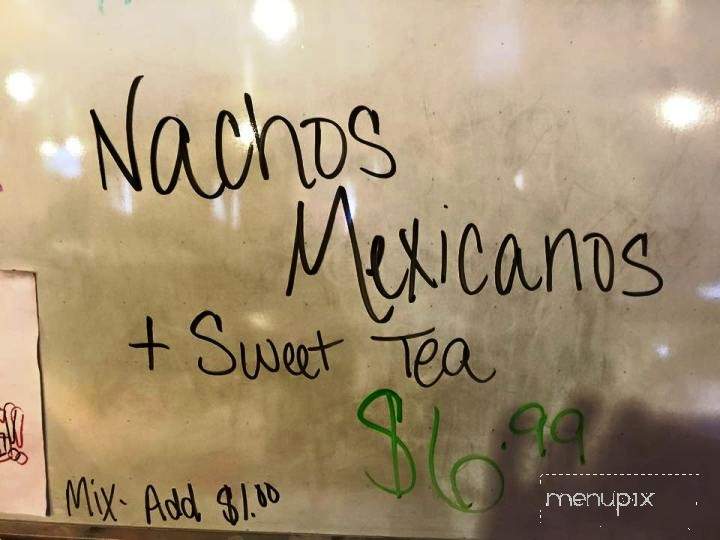 Nachos
Mexicanos
+ Sweet Tea
$6.99
Mix- Add $1.00
menupix